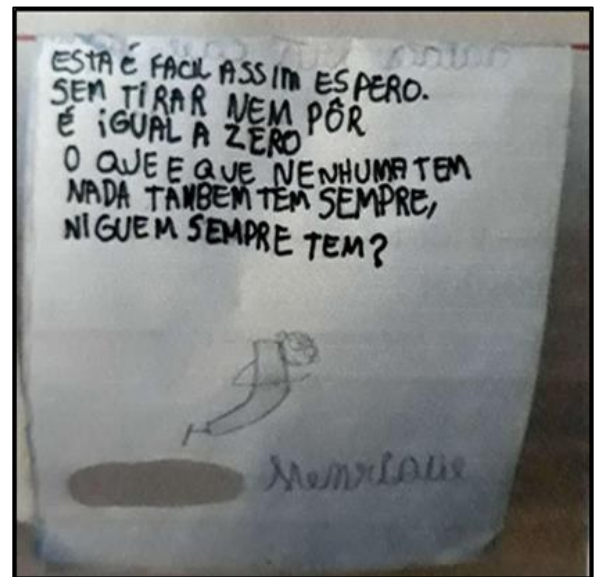 ESTA É FACIL ASSIM ESPERO.
SEM TIRAR NEM PÔR
É IGUAL A ZERO
O QUE E QUE NENHUMA TEM
NADA TANBEM TEM SEMPRE,
NIGUEM SEMPRE TEM?
Henrique